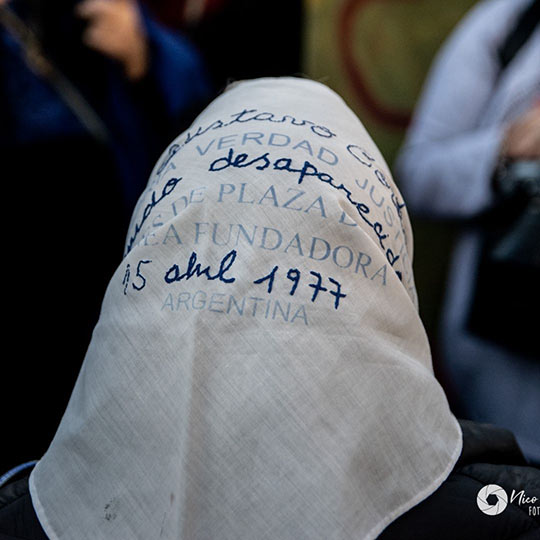 Gustavo Cor
VERDAD JUSTI
desaparecido
DE PLAZA D
EA FUNDADORA
25 abril 1977
ARGENTINA
Nico
FOT